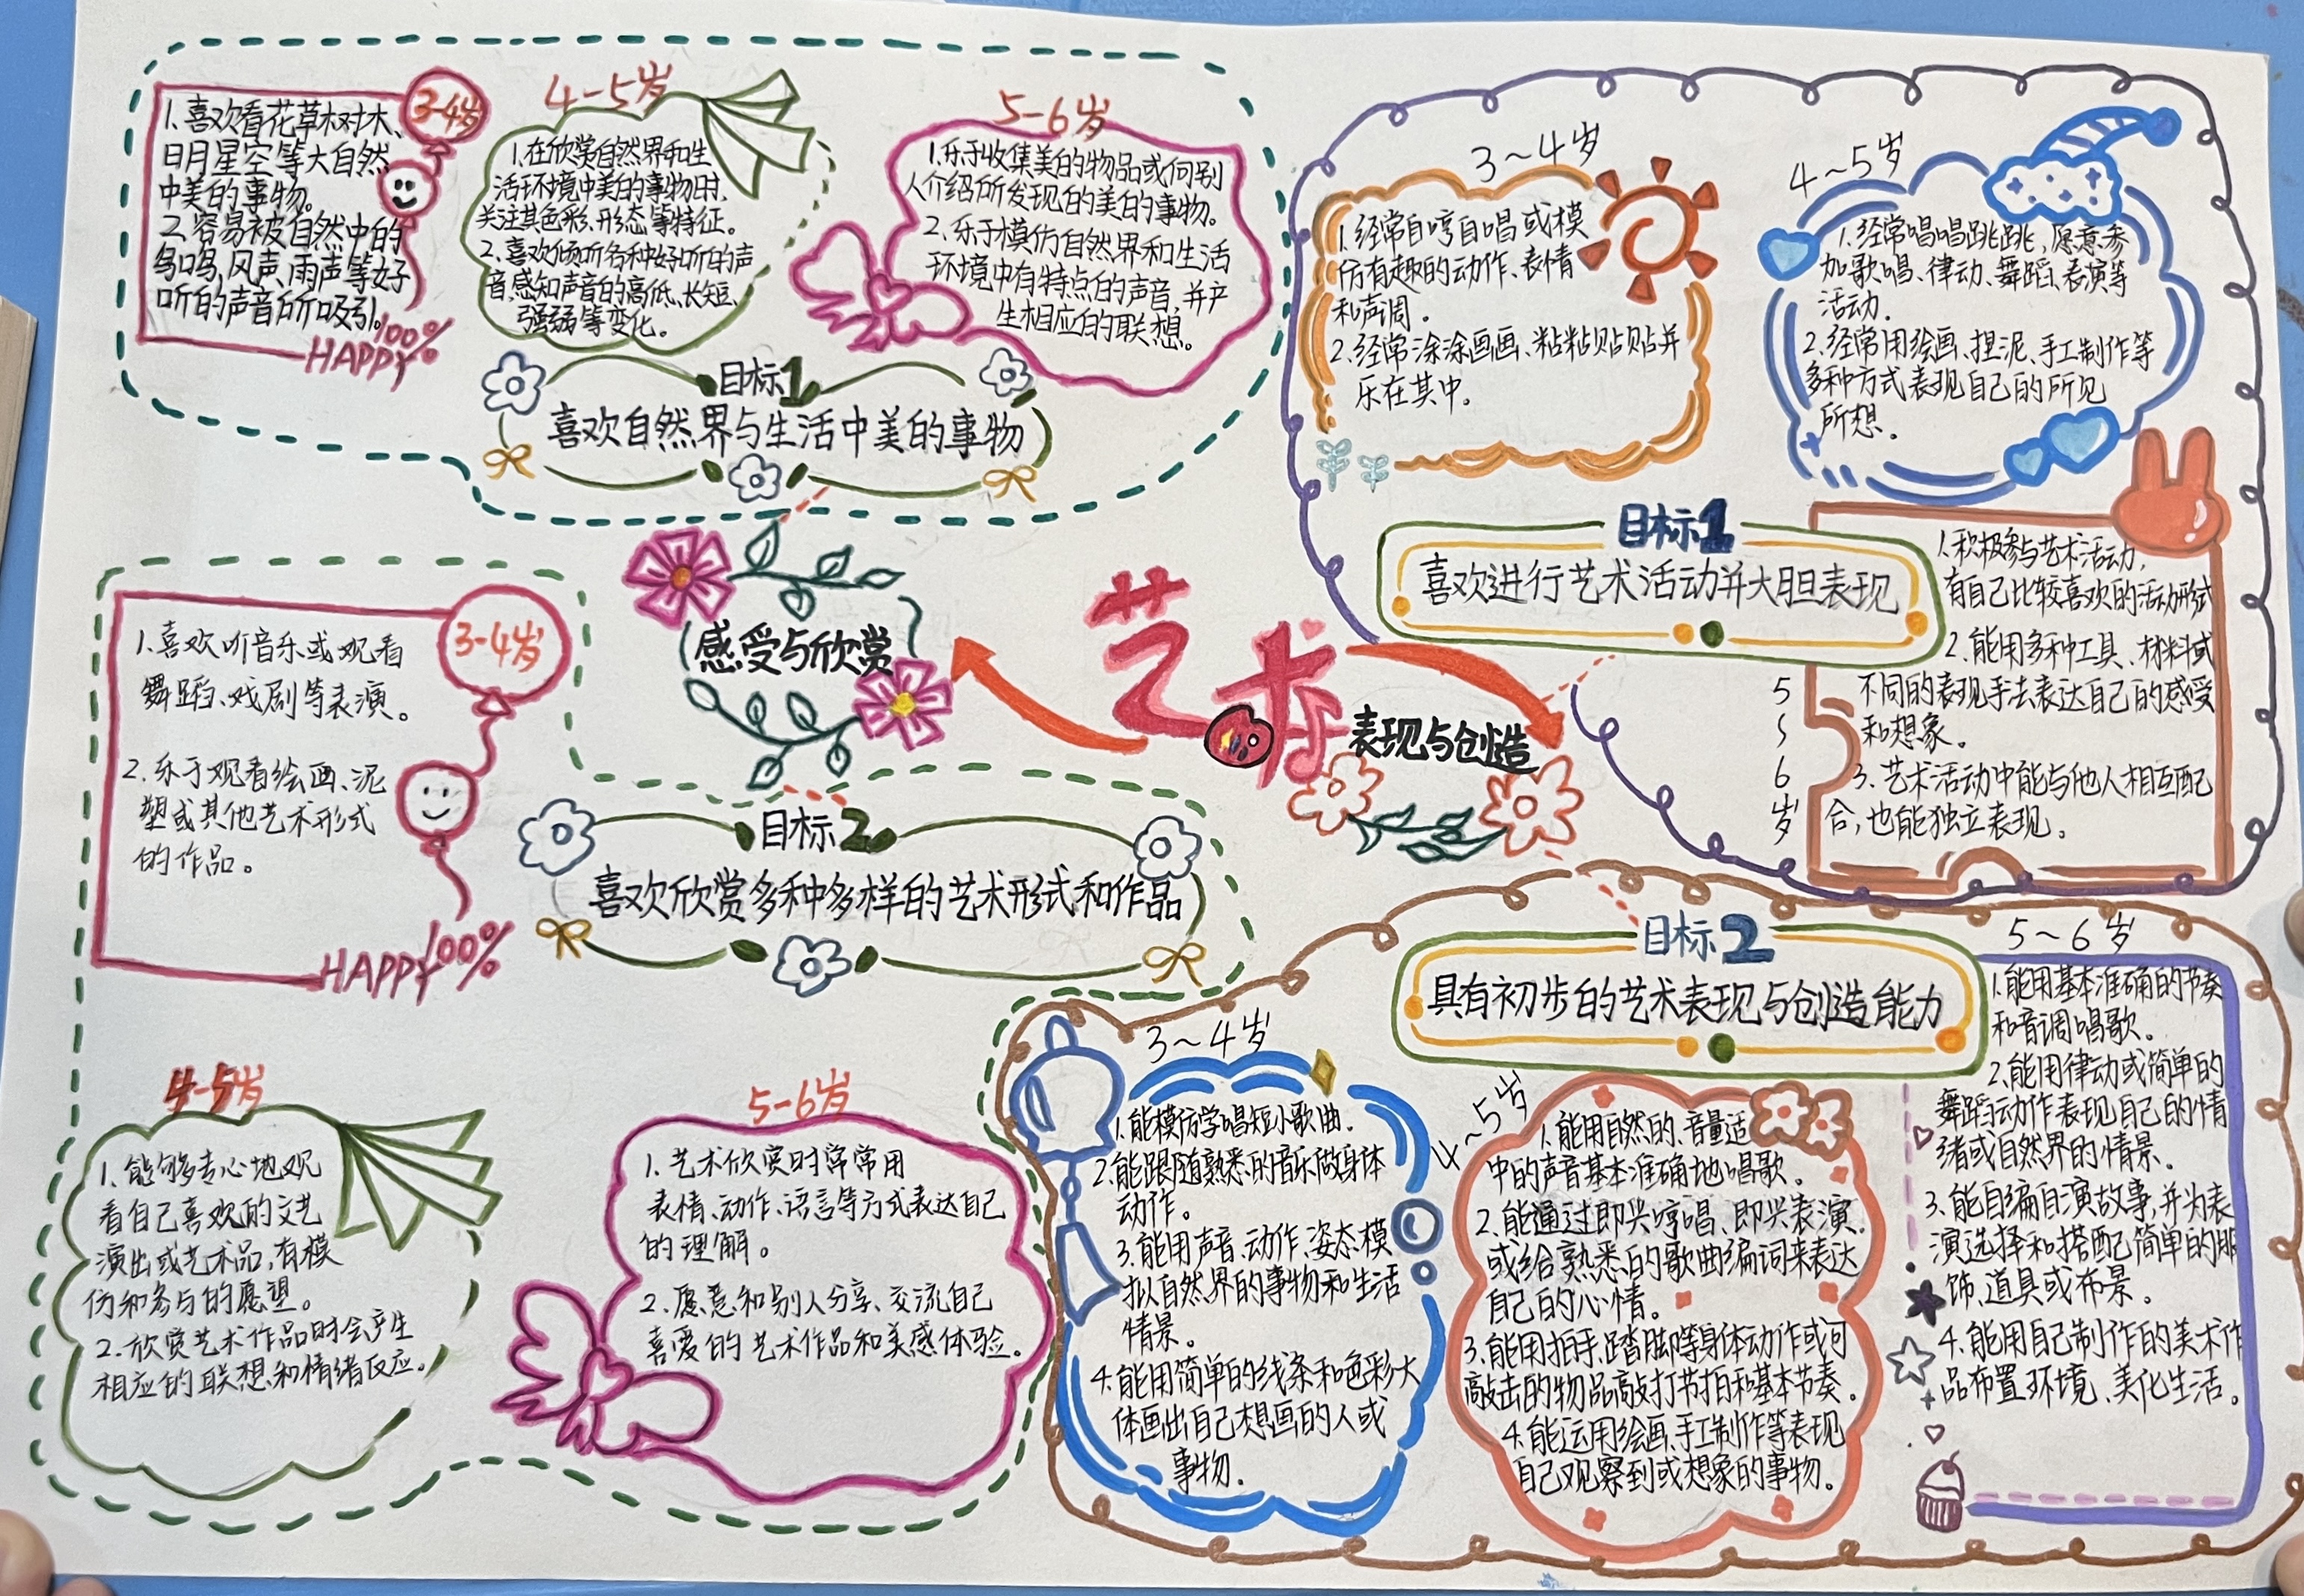 艺术
感受与欣赏
目标1
喜欢自然界与生活中美的事物
3-4岁
1.喜欢看花草树木、
日月星空等大自然
中美的事物。
2.容易被自然中的
鸟鸣、风声、雨声等好
听的声音所吸引。
HAPPY 100%
4-5岁
1.在欣赏自然界和生
活环境中美的事物时,
关注其色彩、形态等特征。
2.喜欢倾听各种好听的声
音,感知声音的高低、长短、
强弱等变化。
5-6岁
1.乐于收集美的物品或向别
人介绍所发现的美的事物。
2.乐于模仿自然界和生活
环境中有特点的声音,并产
生相应的联想。
目标2
喜欢欣赏多种多样的艺术形式和作品
3-4岁
1.喜欢听音乐或观看
舞蹈、戏剧等表演。
2.乐于观看绘画、泥
塑或其他艺术形式
的作品。
HAPPY 100%
4-5岁
1.能够专心地观
看自己喜欢的文艺
演出或艺术品,有模
仿和参与的愿望。
2.欣赏艺术作品时会产生
相应的联想和情绪反应。
5-6岁
1.艺术欣赏时常常用
表情、动作、语言等方式表达自己
的理解。
2.愿意和别人分享、交流自己
喜爱的艺术作品和美感体验。
表现与创造
目标1
喜欢进行艺术活动并大胆表现
3~4岁
1.经常自哼自唱或模
仿有趣的动作、表情
和声调。
2.经常涂涂画画、粘粘贴贴并
乐在其中。
4~5岁
1.经常唱唱跳跳,愿意参
加歌唱、律动、舞蹈、表演等
活动.
2.经常用绘画、捏泥、手工制作等
多种方式表现自己的所见
所想。
5~6岁
1.积极参与艺术活动,
有自己比较喜欢的活动形式
2.能用多种工具、材料或
不同的表现手法表达自己的感受
和想象。
3.艺术活动中能与他人相互配
合,也能独立表现。
目标2
具有初步的艺术表现与创造能力
3~4岁
1.能模仿学唱短小歌曲.
2.能跟随熟悉的音乐做身体
动作。
3.能用声音、动作、姿态模
拟自然界的事物和生活
情景。
4.能用简单的线条和色彩大
体画出自己想画的人或
事物.
4~5岁
1.能用自然的、音量适
中的声音基本准确地唱歌。
2.能通过即兴哼唱、即兴表演
或给熟悉的歌曲编词来表达
自己的心情。
3.能用拍手、踏脚等身体动作或可
敲击的物品敲打节拍和基本节奏。
4.能运用绘画、手工制作等表现
自己观察到或想象的事物。
5~6岁
1.能用基本准确的节奏
和音调唱歌。
2.能用律动或简单的
舞蹈动作表现自己的情
绪或自然界的情景。
3.能自编自演故事,并为表
演选择和搭配简单的服
饰、道具或布景。
4.能用自己制作的美术作
品布置环境、美化生活。